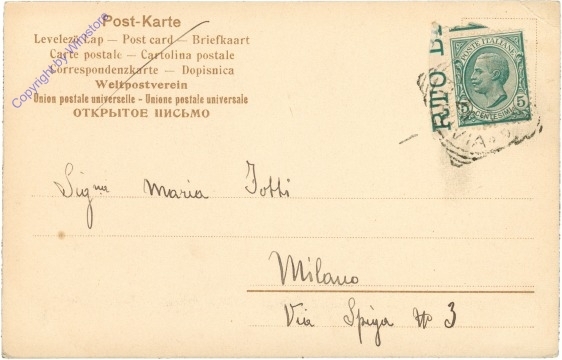 Post-Karte
Levelező-Lap — Post card — Briefkaart
Carte postale — Cartolina postale
Correspondenzkarte — Dopisnica
Weltpostverein
Union postale universelle - Unione postale universale
ОТКРЫТОЕ ПИСЬМО
Copyright by Winstore
POSTE ITALIANE
5 CENTESIMI 5
Signa Maria Totti
Milano
Via Spiga No 3